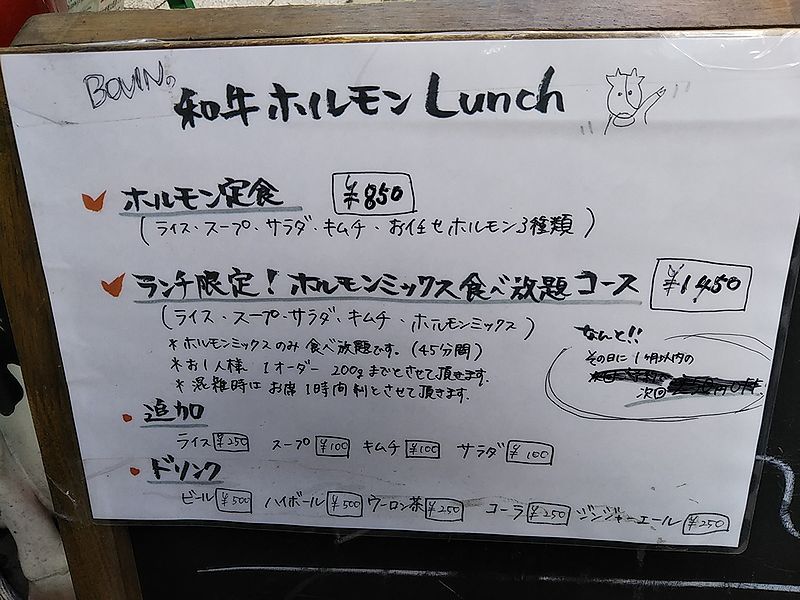 BOVINの
和牛ホルモン Lunch
ホルモン定食 ¥850
(ライス・スープ・サラダ・キムチ・お任せホルモン3種類)
ランチ限定!ホルモンミックス食べ放題コース ¥1450
(ライス・スープ・サラダ・キムチ・ホルモンミックス)
*ホルモンミックスのみ食べ放題です。(45分間)
*お1人様 1オーダー 200gまでとさせて頂きます。
*混雑時はお席1時間制とさせて頂きます。
なんと!!
その日に1ヶ月以内の
次回
・追加
ライス ¥250 スープ ¥100 キムチ ¥100 サラダ ¥100
・ドリンク
ビール ¥500 ハイボール ¥500 ウーロン茶 ¥250 コーラ ¥250 ジンジャーエール ¥250